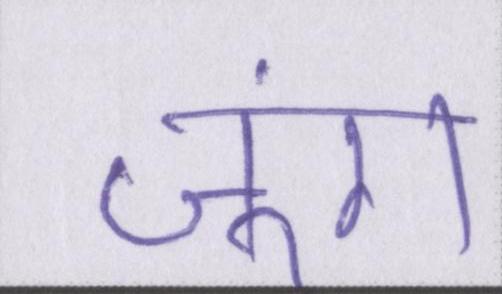 जूंग